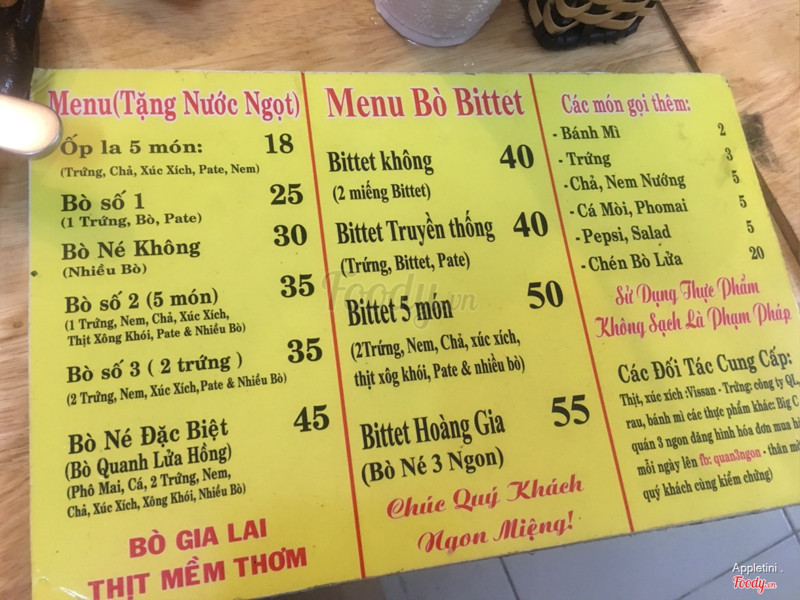 Menu(Tặng Nước Ngọt)
Ốp la 5 món: 18
(Trứng, Chả, Xúc Xích, Pate, Nem)
Bò số 1 25
(1 Trứng, Bò, Pate)
Bò Né Không 30
(Nhiều Bò)
Bò số 2 (5 món) 35
(1 Trứng, Nem, Chả, Xúc Xích,
Thịt Xông Khói, Pate & Nhiều Bò)
Bò số 3 ( 2 trứng ) 35
(2 Trứng, Nem, Xúc Xích,Pate & Nhiều Bò)
Bò Né Đặc Biệt 45
(Bò Quanh Lửa Hồng)
(Phô Mai, Cá, 2 Trứng, Nem,
Chả, Xúc Xích, Xông Khói, Nhiều Bò)
BÒ GIA LAI
THỊT MỀM THƠM
Menu Bò Bittet
Bittet không 40
(2 miếng Bittet)
Bittet Truyền thống 40
(Trứng, Bittet, Pate)
Bittet 5 món 50
(2Trứng, Nem, Chả, xúc xích,
thịt xôg khói, Pate & nhiều bò)
Bittet Hoàng Gia 55
(Bò Né 3 Ngon)
Chúc Quý Khách
Ngon Miệng!
Các món gọi thêm:
- Bánh Mì 2
- Trứng 3
- Chả, Nem Nướng 5
- Cá Mòi, Phomai 5
- Pepsi, Salad 5
- Chén Bò Lửa 20
Sử Dụng Thực Phẩm
Không Sạch Là Phạm Pháp
Các Đối Tác Cung Cấp:
Thịt, xúc xích :Vissan - Trứng: công ty QL,
rau, bánh mì các thực phẩm khác: Big C
quán 3 ngon đăng hình hóa đơn mua
mỗi ngày lên fb: quan3ngon - thân
quý khách cùng kiểm chứng)
Foody.vn
Appletini
Foody.vn